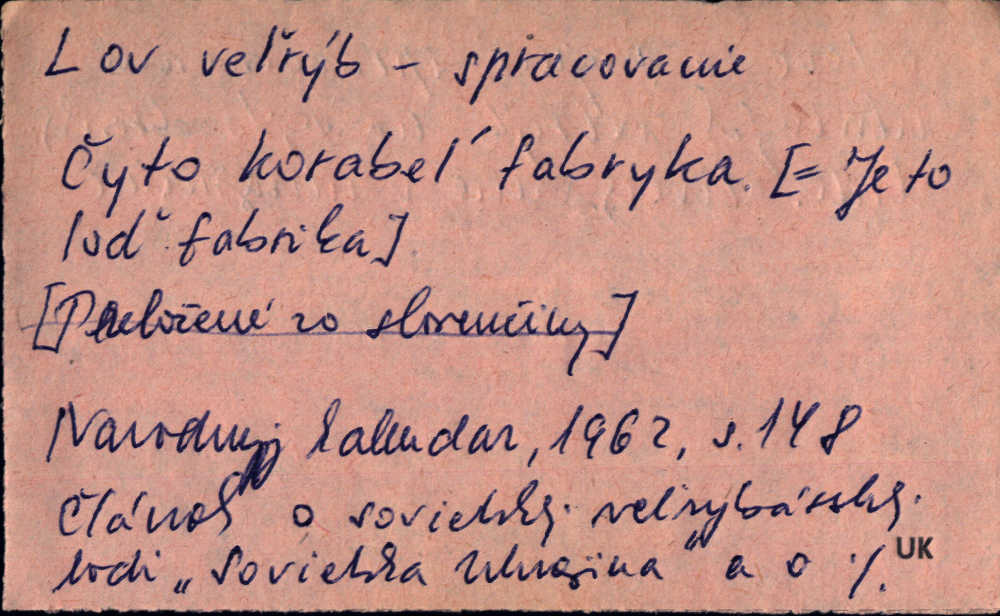 Lov veľrýb - spracovanie
Čyto korabeľ fabryka. [= Je to
loď fabrika]
[Preložené zo slovenčiny]
Narodnyj kalendar, 1962, s. 148
Článok o sovietskej veľrybárskej
lodi „Sovietska Ukrajina" a o ·/.
UK